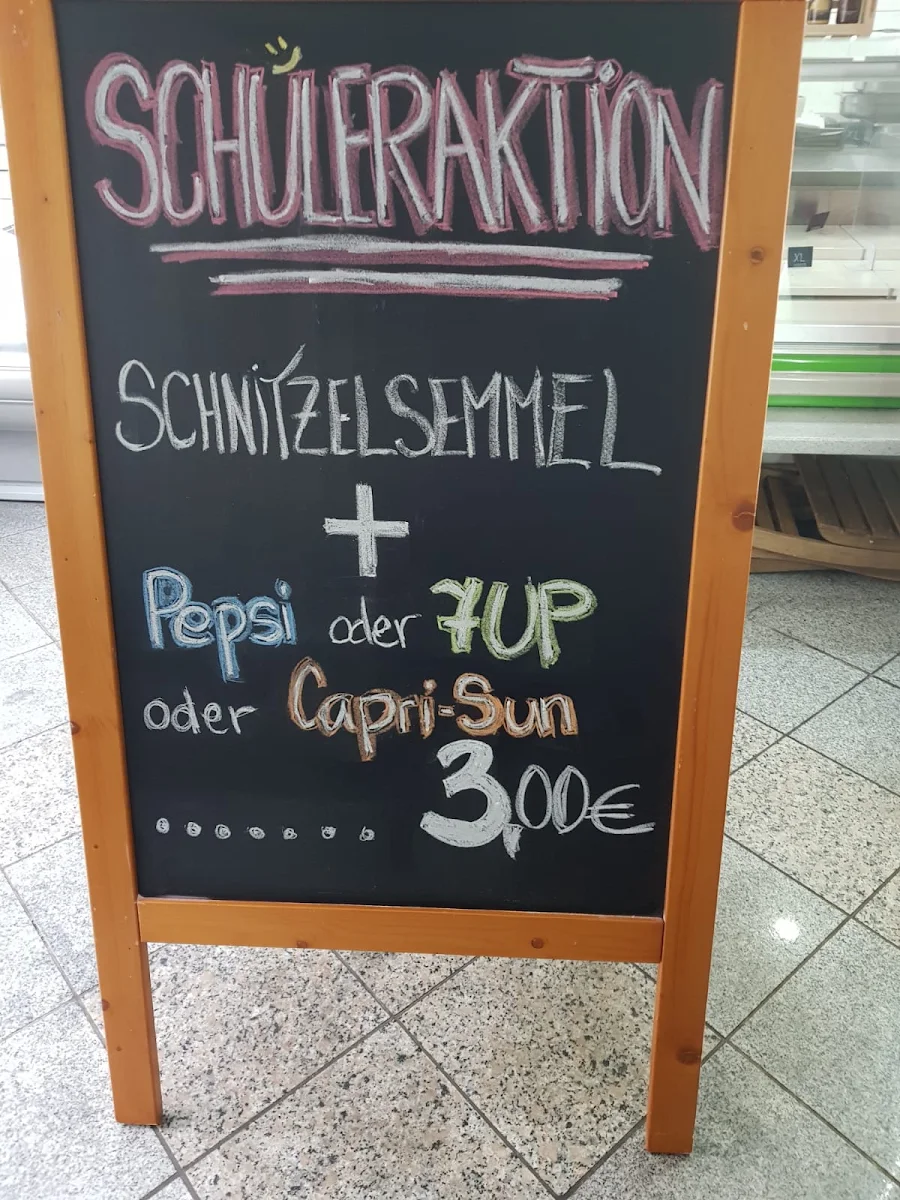 SCHÜLERAKTION
SCHNITZELSEMMEL
+
Pepsi oder 7UP
oder Capri-Sun
....... 3,00€
XL